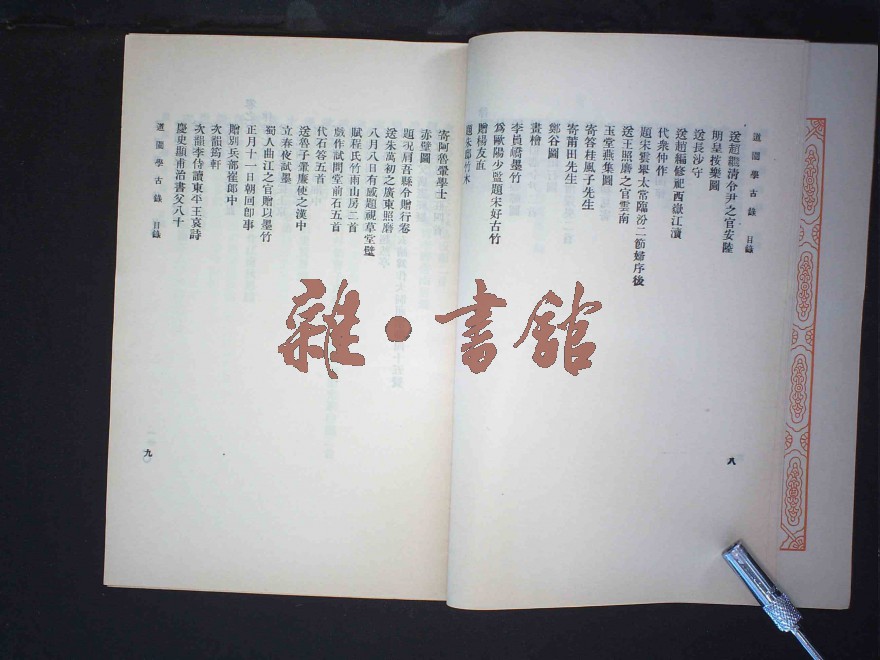 道園學古錄 目錄
送趙虛清令尹之官安陸
明皇按樂圖
送長沙守
送趙編修祀西嶽江瀆
代衆仲作
題宋雲舉太常臨汾二節婦序後
送王照磨之官雲南
玉堂燕集圖
寄答桂風子先生
寄莆田先生
鄭谷圖
畫檜
李員嶠墨竹
爲歐陽少監題宋好古竹
贈楊友直
八
寄阿魯翬學士
赤壁圖
題祝眉吾縣令贈行卷
送朱萬初之廣東照磨
八月八日有感題視草堂壁
賦程氏竹雨山房二首
戲作試問堂前石五首
代石答五首
送魯子翬廉使之漢中
立春夜試墨
蜀人曲江之官贈以墨竹
正月十一日朝回卽事
贈別兵部崔郎中
次韻筠軒
次韻李侍讀東平王哀詩
慶史顯甫治書父八十
道園學古錄 目錄
九
雜·書館